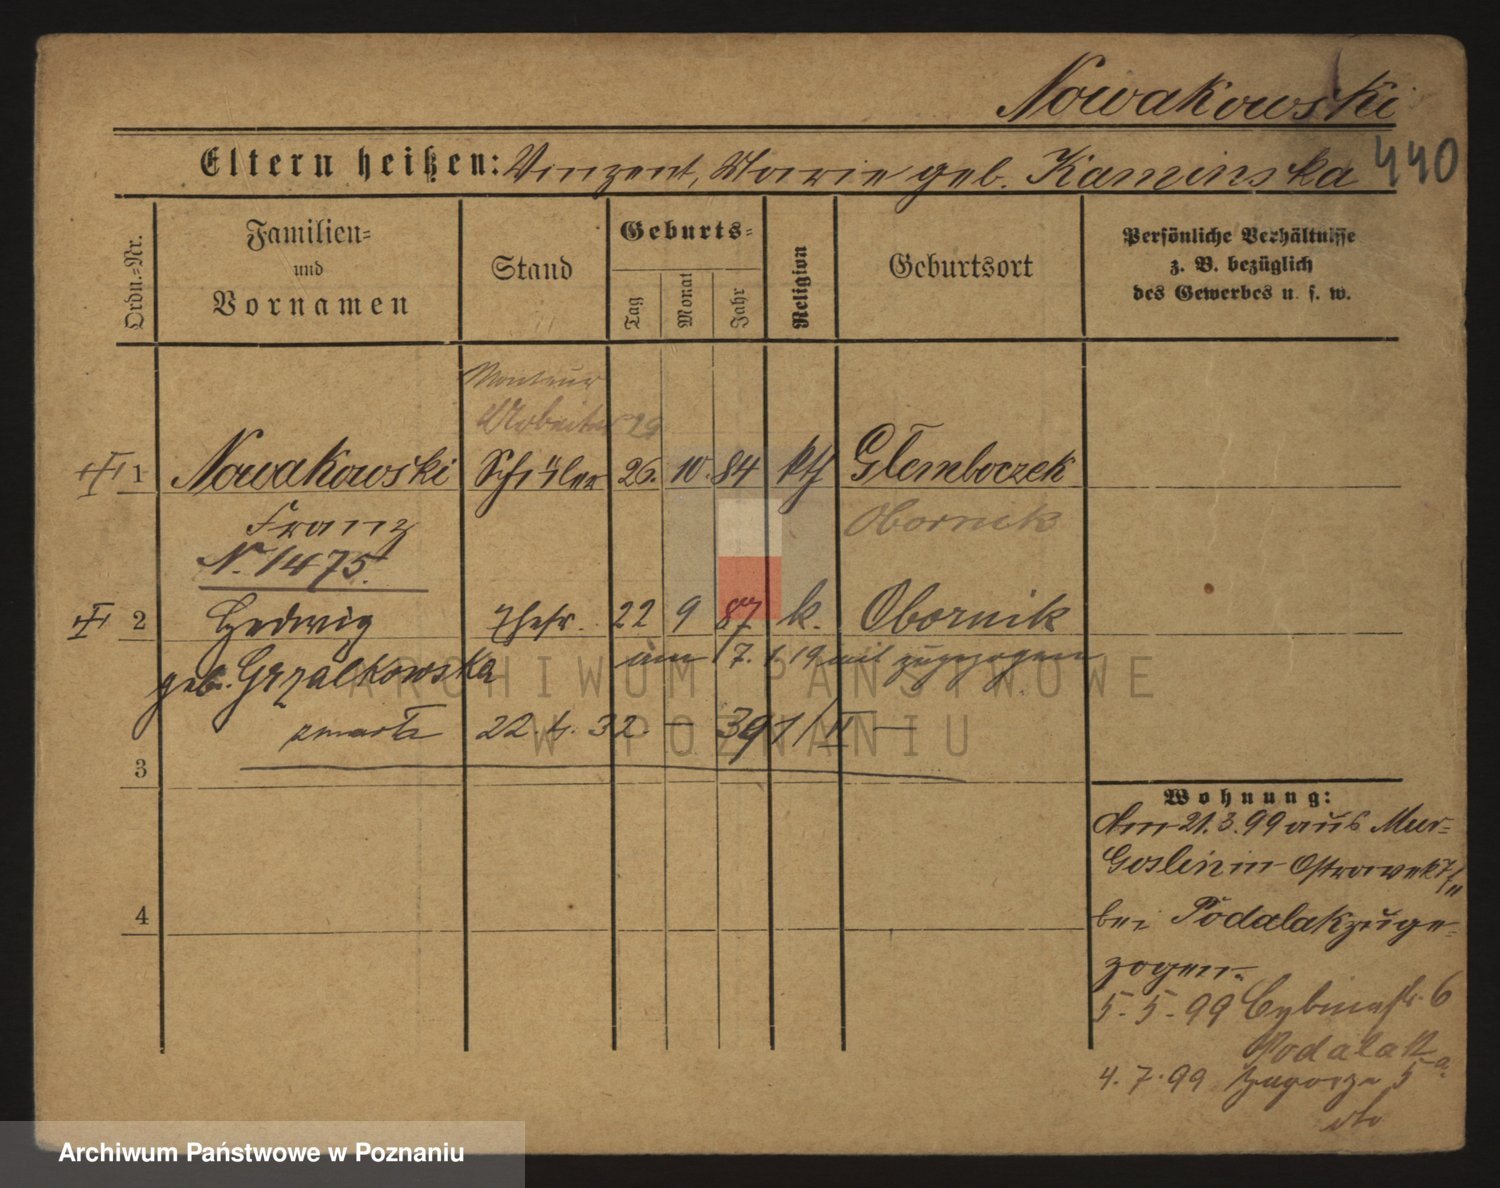 Nowakowski
440
Eltern heißen: Vinzent, Marie geb. Kaminska
Ordn.=Nr.
Familien=
und
Vornamen
Stand
Geburts=
Tag
Monat
Jahr
Religion
Geburtsort
Persönliche Verhältnisse
z. B. bezüglich
des Gewerbes u. s. w.
Monteur
Arbeiter 29
1 Nowakowski Schüler 26. 10. 84 kth Glemboczek
Franz Obornik
N. 1475.
2 Hedwig Ehefr. 22 9 87 k. Obornik
geb. Grzalkowska am 7. 1. 19 mit zugezogen
zmarła 22. 4. 32. — 391/II —
3
4
Wohnung:
Am 21.3.99 aus Mur=
Goslin in Ostrowek 7
bei Podalak zuge=
zogen.
5. 5. 99 Cybinastr. 6
Podalak
4. 7. 99 Zagorze 5 a.
dto
ARCHIWUM PAŃSTWOWE
W POZNANIU
Archiwum Państwowe w Poznaniu